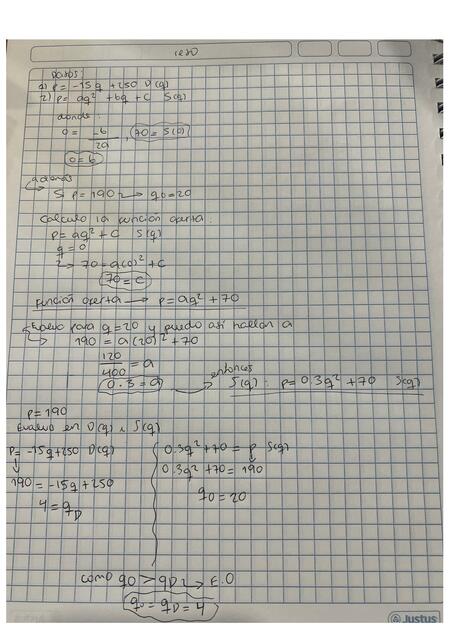 Datos
1) p = -15q + 250 D(q)
2) p = aq² + bq + C S(q)
donde:
0 = -b/2a , 70 = S(0)
0 = b
además
Si p = 190 → q0 = 20
Calculo la función oferta:
p = aq² + C S(q)
q = 0
→ 70 = a(0)² + C
70 = C
Función oferta → p = aq² + 70
Evalúo para q = 20 y puedo así hallar a
190 = a(20)² + 70
120/400 = a
0.3 = a → entonces S(q): p = 0.3q² + 70 S(q)
p = 190
Evalúo en D(q) y S(q)
p = -15q + 250 D(q)
190 = -15q + 250
4 = qD
0.3q² + 70 = p S(q)
0.3q² + 70 = 190
q0 = 20
como q0 > qD → E.O
q0 = qD = 4
Justus